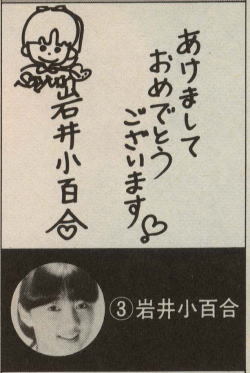 あけまして
おめでとう
ございます
Sayuri
岩井小百合
③岩井小百合